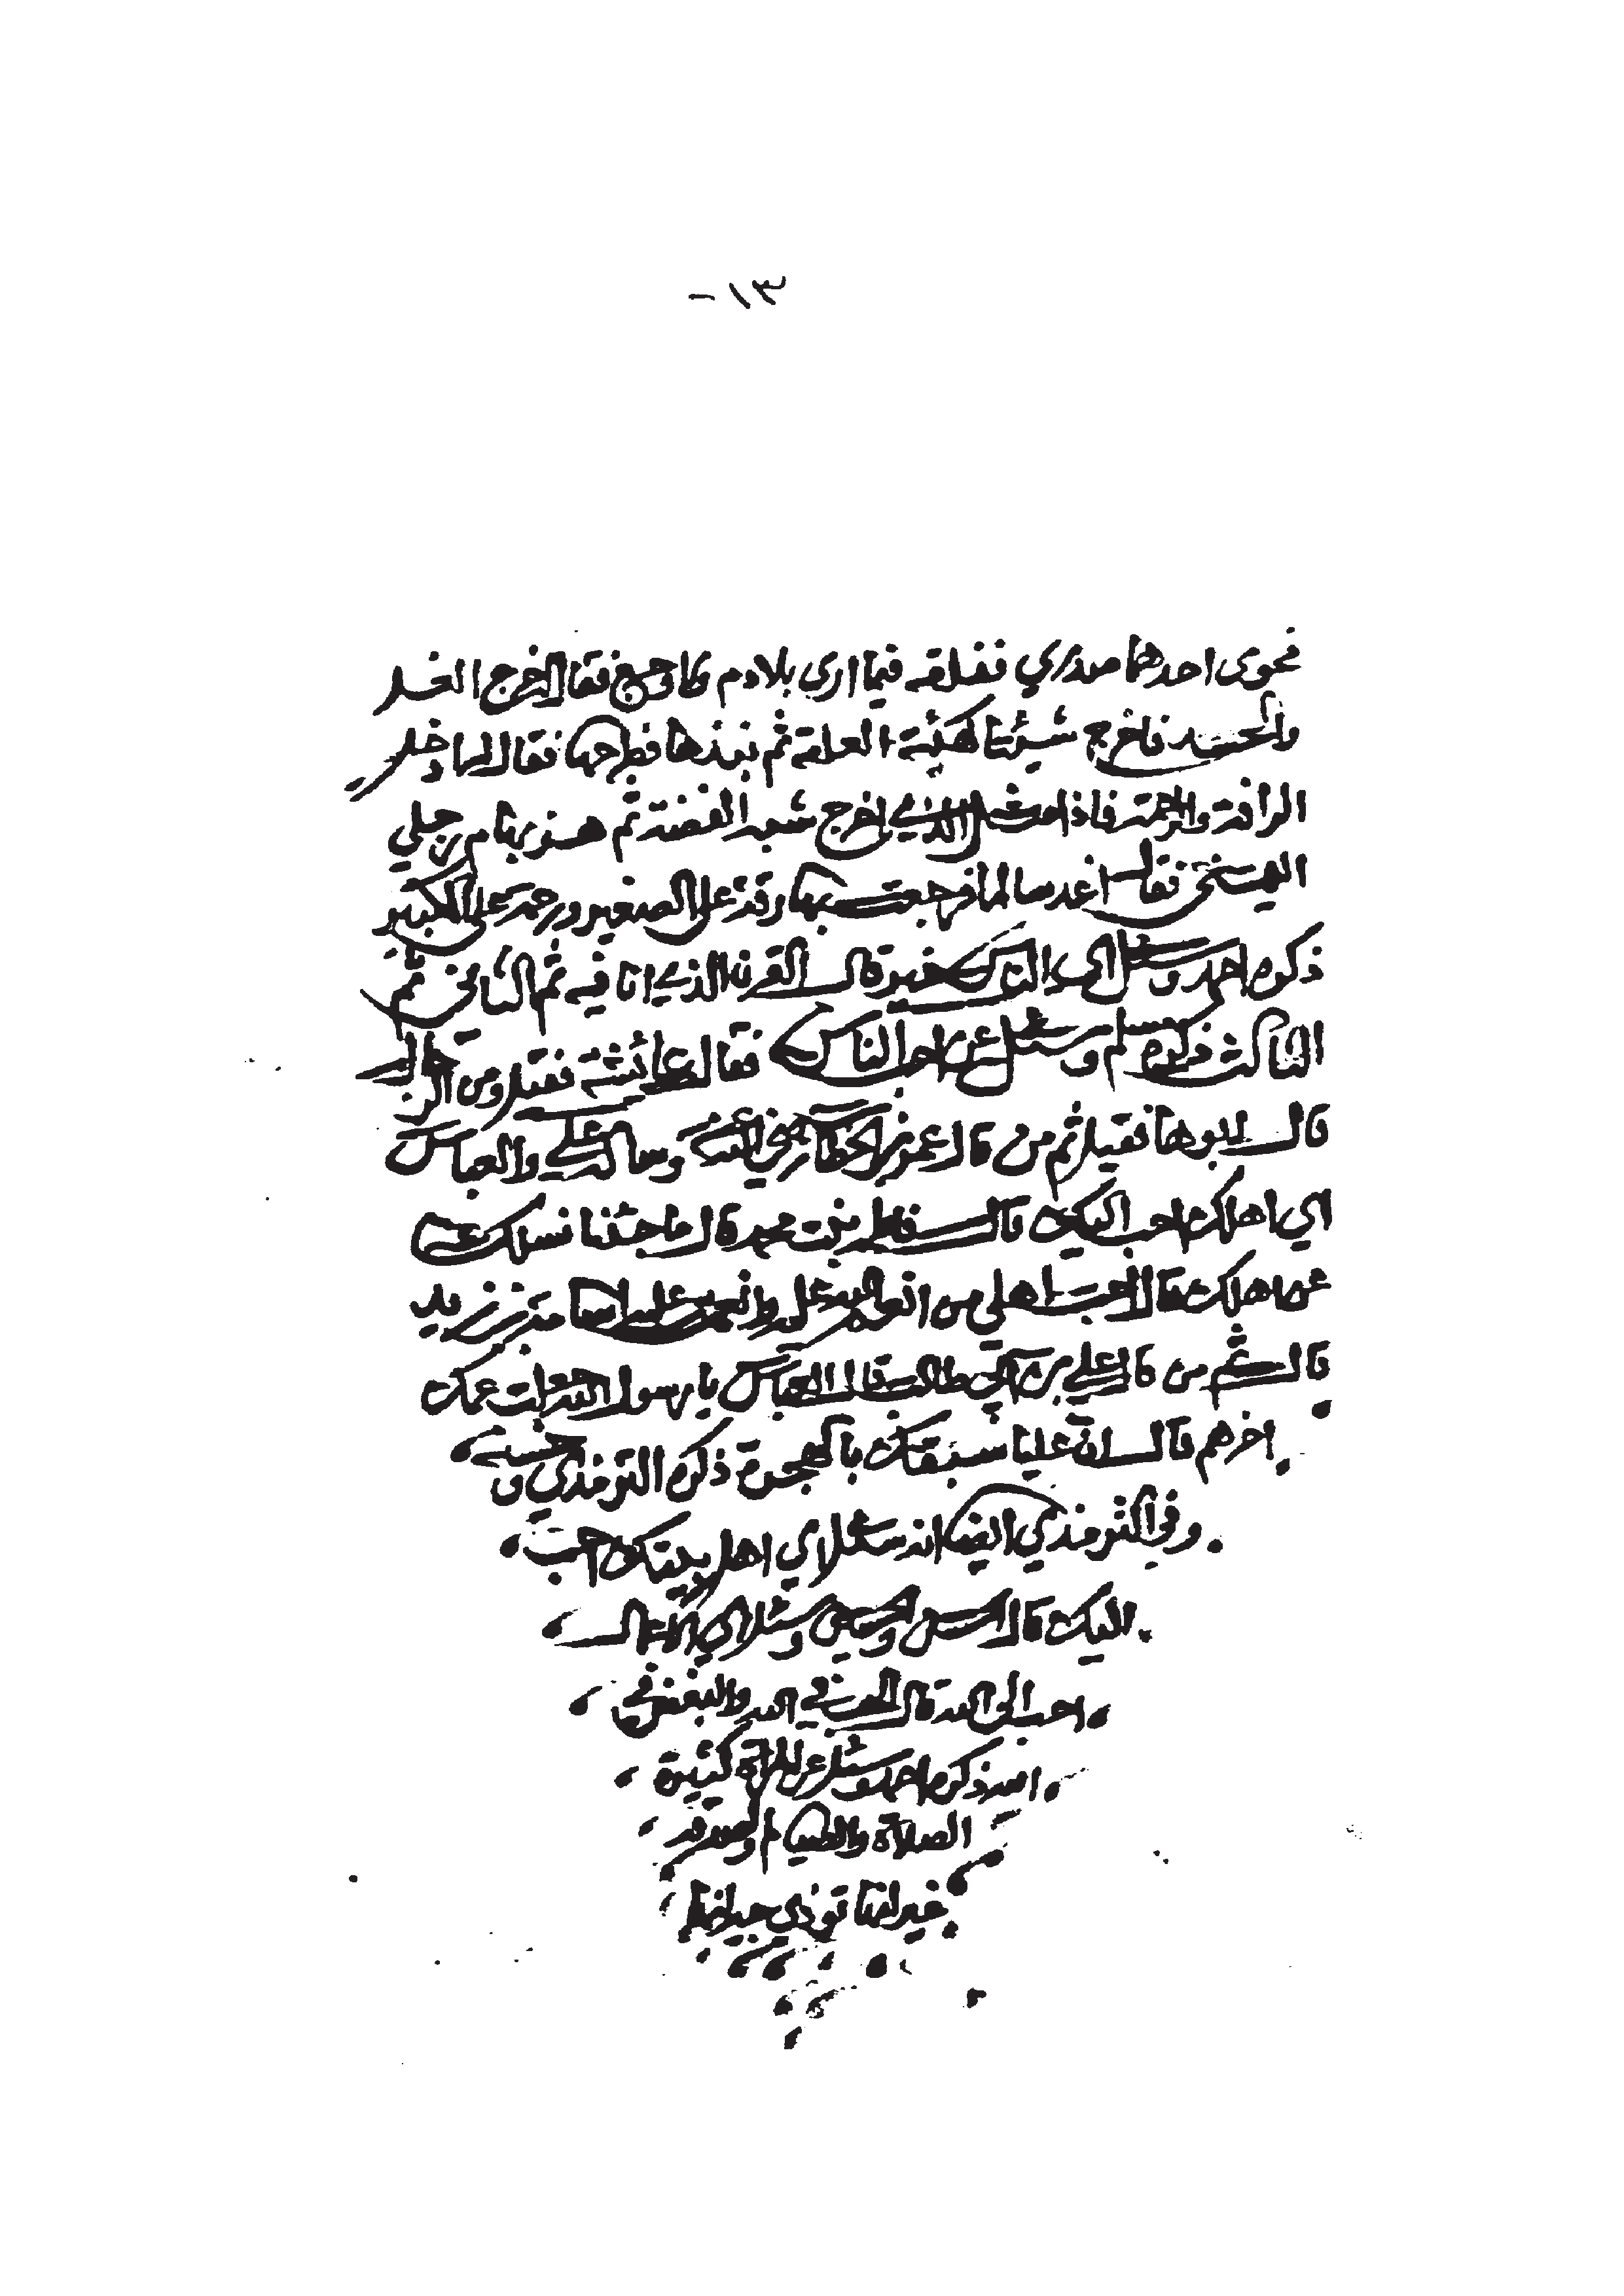 ١٣-
فحوى احدهما صدري ففلقه فيما ارى بلا دم ولا وجع فقال اخرج الغل
والحسد فاخرج شيئا كهيئة العلقة ثم نبذها فطرحها فقال له ادخل
الرافة والرحمة فاذا مثل الذي اخرج شبه الفضة ثم هز بهام رجلي
اليمنى فقال اغد سالما فرجعت بها رقة على الصغير ورحمة على الكبير
ذكره احمد وسئل اي الناس خير قال القرن الذي انا فيه ثم الثاني ثم
الثالث ذكره مسلم وسئل عن احب الناس فقال عائشة فقيل ومن الرجال
قال ابوها فقيل ثم من قال عمر بن الخطاب رضي الله وساله علي والعباس
اي اهلك احب اليك قال فاطمة بنت محمد قال ما جئنا نسلك
عن اهلك قال احب اهلي من انعم الله عليه وانعمت عليه اسامة بن زيد
قال ثم من قال علي بن ابي طالب فقال العباس يا رسول الله جعلت عمك
اخرهم قال ان عليا سبقك بالهجرة ذكره الترمذي وحسنه
وفي الترمذي ايضا انه سئل اي اهل بيتك احب
اليك قال الحسن والحسين وسئل اي الاعمال
احب الى الله قال الحب في الله والبغض في
الله ذكره احمد وسئل عن امراة كثيرة
الصلاة والصيام والصدقة
غير انها توذي جيرانها